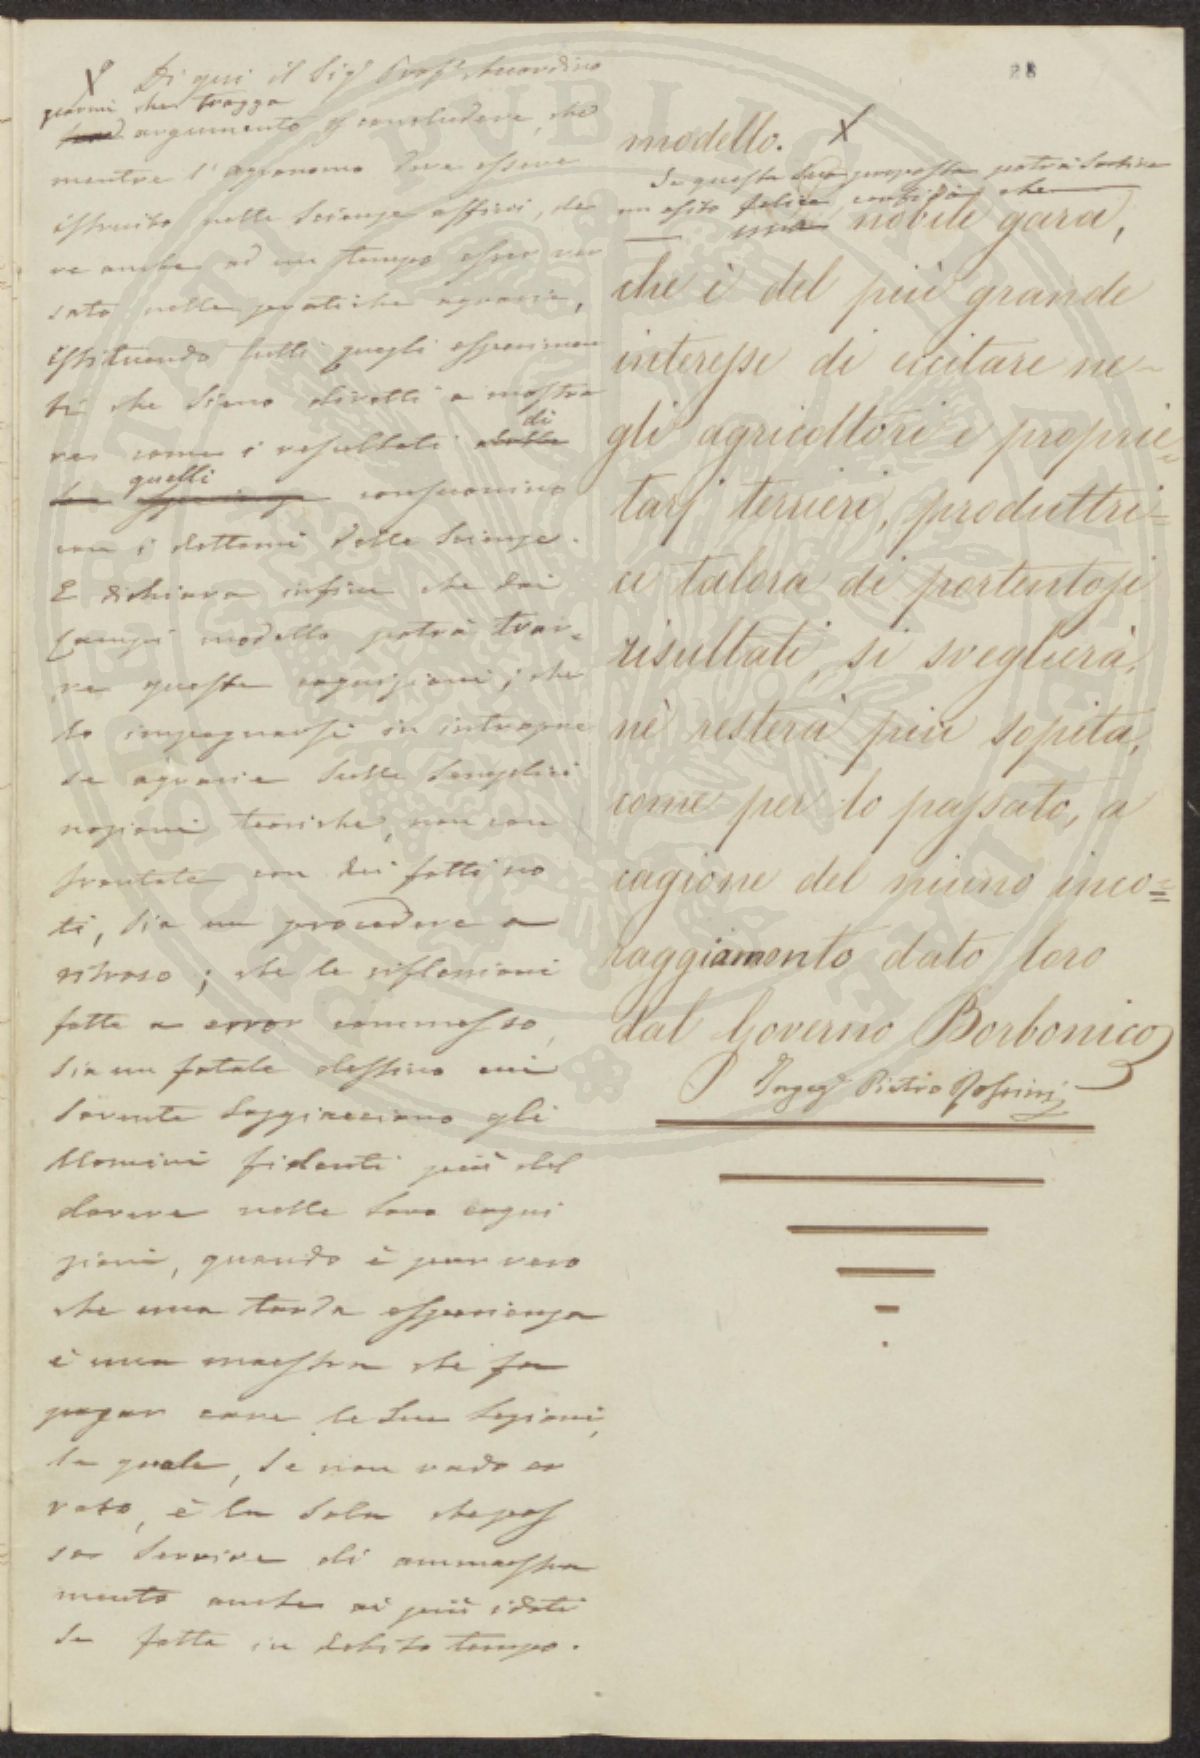 28
X Di qui il Sig.r Prof.r straordino
parmi che tragga
argumento p concludere, che
mentre l'agronomo deve essere
istruito nelle Scienze affini, de
ve anche ad un tempo esser ver
sato nelle pratiche agrarie,
istituendo tutti quegli esperimen
ti che sieno diretti a mostra
re come i resultati di
quelli consuonino
con i dettami delle Scienze.
E dichiara infine che dai
Campi modello potrà trar=
re queste cognizioni; che
lo impegnarsi in intrapre
se agrarie sulle semplici
nozioni teoriche, non con
frontate con dei fatti no
ti, sia un procedere a
ritroso; che le riflessioni
fatte a error commesso,
sia un fatale destino cui
sovente soggiacciono gli
Uomini fidenti più del
dovere nelle loro cogni
zioni, quando è pur vero
che una tarda esperienza
è una maestra che fa
pagar care le sue lezioni,
la quale, se non vado er
rato, è la sola che pos
sa servire di ammaestra
mento anche ai più idoti
se fatta in debito tempo.
modello. X
Se questa sua proposta potrà sortire
un esito felice, confido che
una nobile gara,
che è del più grande
interesse di eccitare ne-
gli agricoltori e proprie=
tarj terrieri, produttri=
ci talora di portentosi
risultati, si sveglierà,
nè resterà più sopita,
come per lo passato, a
cagione del niuno inco=
raggiamento dato loro
dal Governo Borbonico
Ingeg.r Pietro Rossini